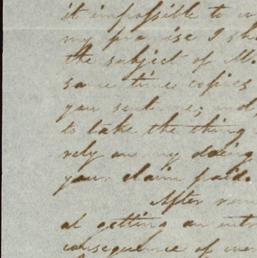 it impossible to
my promise I sh
the subject of M
same time copies
you sent me; and
to take the thing
rely on my doing
your claim paid.
After
at getting an int
consequence of